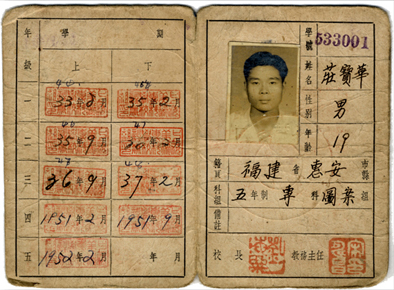 年級 學 期
上 下
一 33年8月 35年2月
二 35年9月
三 36年9月 37年2月
四 1951年2月 1951年9月
五 1952年2月 年 月
學號 533001
姓名 莊寶華
性別 男
年齡 19
籍貫 福建省惠安市縣
科組 五年制專科圖案組
備註
校長 教務主任